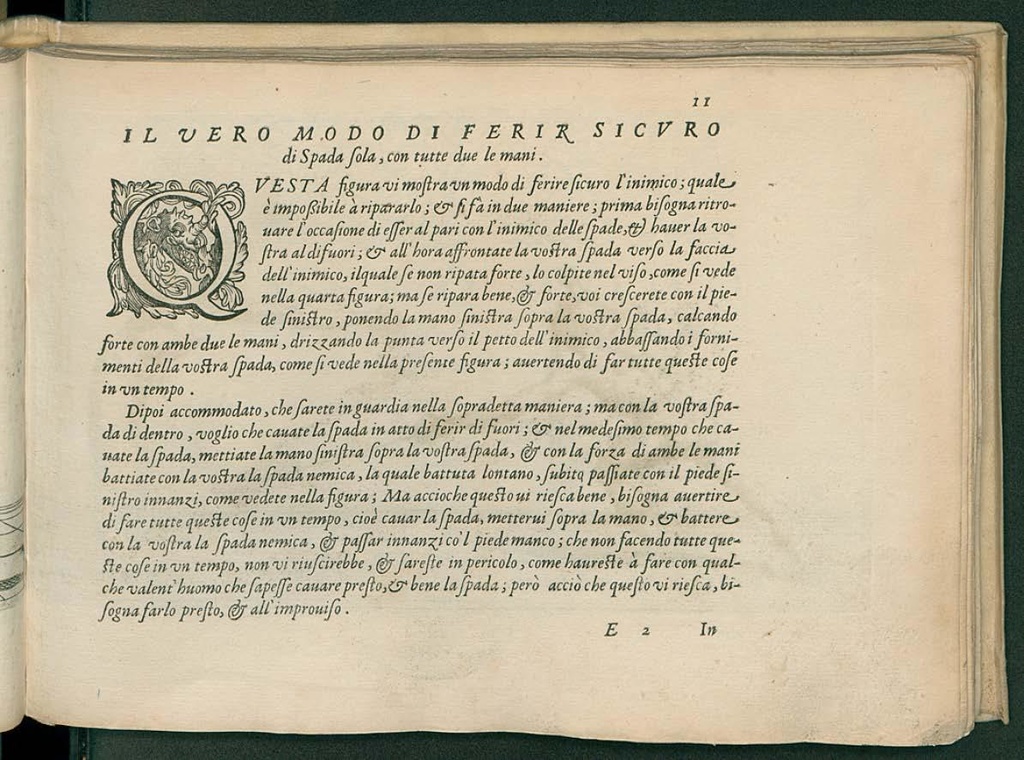 11
IL VERO MODO DI FERIR SICVRO
di Spada ſola, con tutte due le mani.
QVESTA figura vi moſtra vn modo di ferire ſicuro l'inimico; quale
è impoßibile à ripararlo; & ſi fà in due maniere; prima biſogna ritro-
uare l'occaſione di eſſer al pari con l'inimico delle ſpade, & hauer la vo-
ſtra al difuori; & all'hora affrontate la voſtra ſpada verſo la faccia
dell'inimico, ilquale ſe non ripata forte, lo colpite nel viſo, come ſi vede
nella quarta figura; ma ſe ripara bene, & forte, voi creſcerete con il pie-
de ſiniſtro, ponendo la mano ſiniſtra ſopra la voſtra ſpada, calcando
forte con ambe due le mani, drizzando la punta verſo il petto dell'inimico, abbaſſando i forni-
menti della voſtra ſpada, come ſi vede nella preſente figura; auertendo di far tutte queſte coſe
in vn tempo.
Dipoi accommodato, che ſarete in guardia nella ſopradetta maniera; ma con la voſtra ſpa-
da di dentro, voglio che cauate la ſpada in atto di ferir di fuori; & nel medeſimo tempo che ca-
uate la ſpada, mettiate la mano ſiniſtra ſopra la voſtra ſpada, & con la forza di ambe le mani
battiate con la voſtra la ſpada nemica, la quale battuta lontano, ſubito paſſiate con il piede ſi-
niſtro innanzi, come vedete nella figura; Ma accioche queſto ui rieſca bene, biſogna auertire
di fare tutte queſte coſe in vn tempo, cioè cauar la ſpada, metterui ſopra la mano, & battere
con la voſtra la ſpada nemica, & paſſar innanzi co'l piede manco; che non facendo tutte que-
ſte coſe in vn tempo, non vi riuſcirebbe, & ſareſte in pericolo, come haureſte à fare con qual-
che valent'huomo che ſapeſſe cauare preſto, & bene la ſpada; però acciò che queſto vi rieſca, bi-
ſogna farlo preſto, & all'improuiſo.
E 2 In